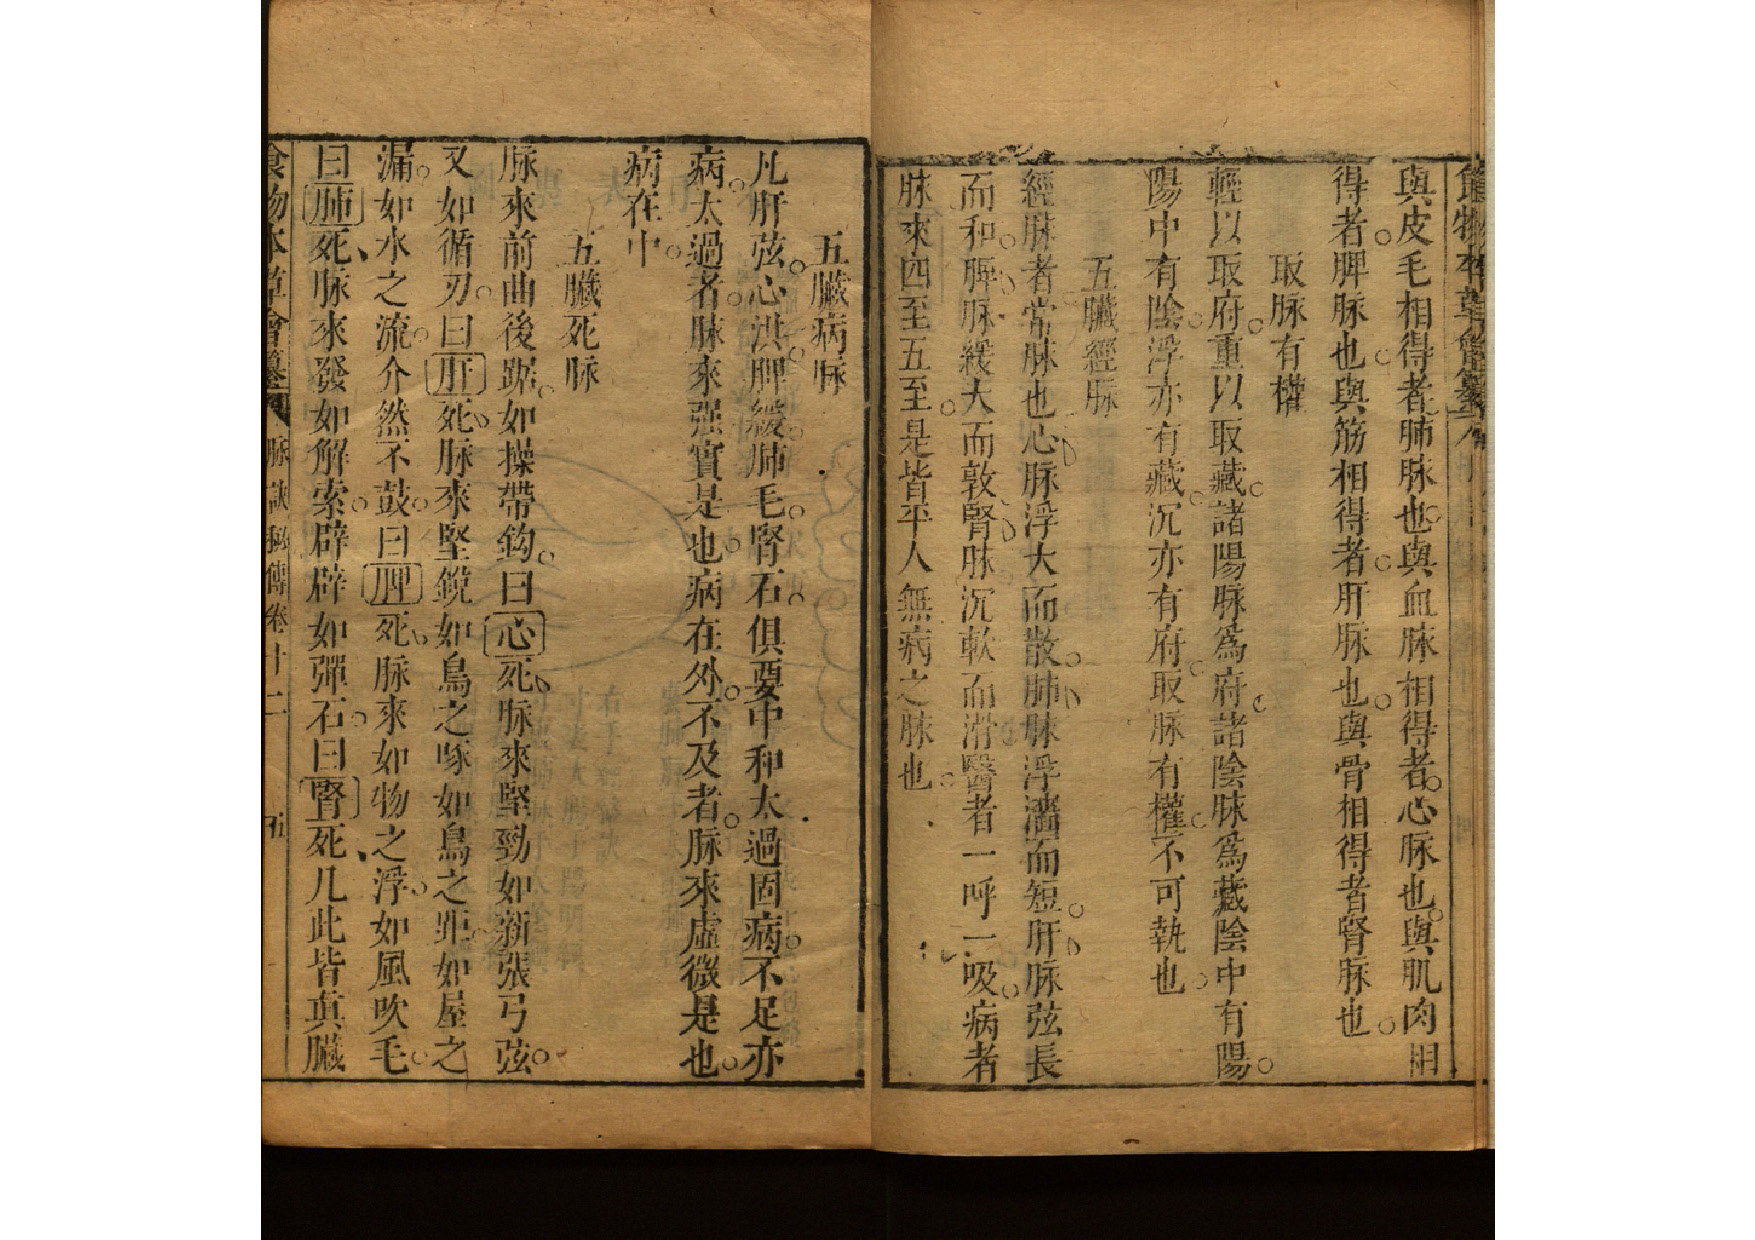 與皮毛相得者肺脉也與血脉相得者心脉也與肌肉相
得者脾脉也與筋相得者肝脉也與骨相得者腎脉也
取脉有權
輕以取府重以取藏諸陽脉爲府諸陰脉爲藏陰中有陽
陽中有陰浮亦有藏沉亦有府取脉有權不可執也
五臟經脉
經脉者常脉也心脉浮大而散肺脉浮濇而短肝脉弦長
而和脾脉緩大而敦腎脉沉軟而滑醫者一呼一吸病者
脉來四至五至是皆平人無病之脉也
五臟病脉
凡肝弦心洪脾緩肺毛腎石俱要中和太過固病不足亦
病太過者脉來强實是也病在外不及者脉來虛微是也
病在中
五臟死脉
脉來前曲後踞如操帶鈎曰心死脉來堅勁如新張弓弦
又如循刃曰肝死脉來堅銳如鳥之啄如鳥之距如屋之
漏如水之流介然不鼓曰脾死脉來如物之浮如風吹毛
曰肺死脉來發如解索辟辟如彈石曰腎死凡此皆真臟
食物本草會纂 脉訣秘傳卷十二 五